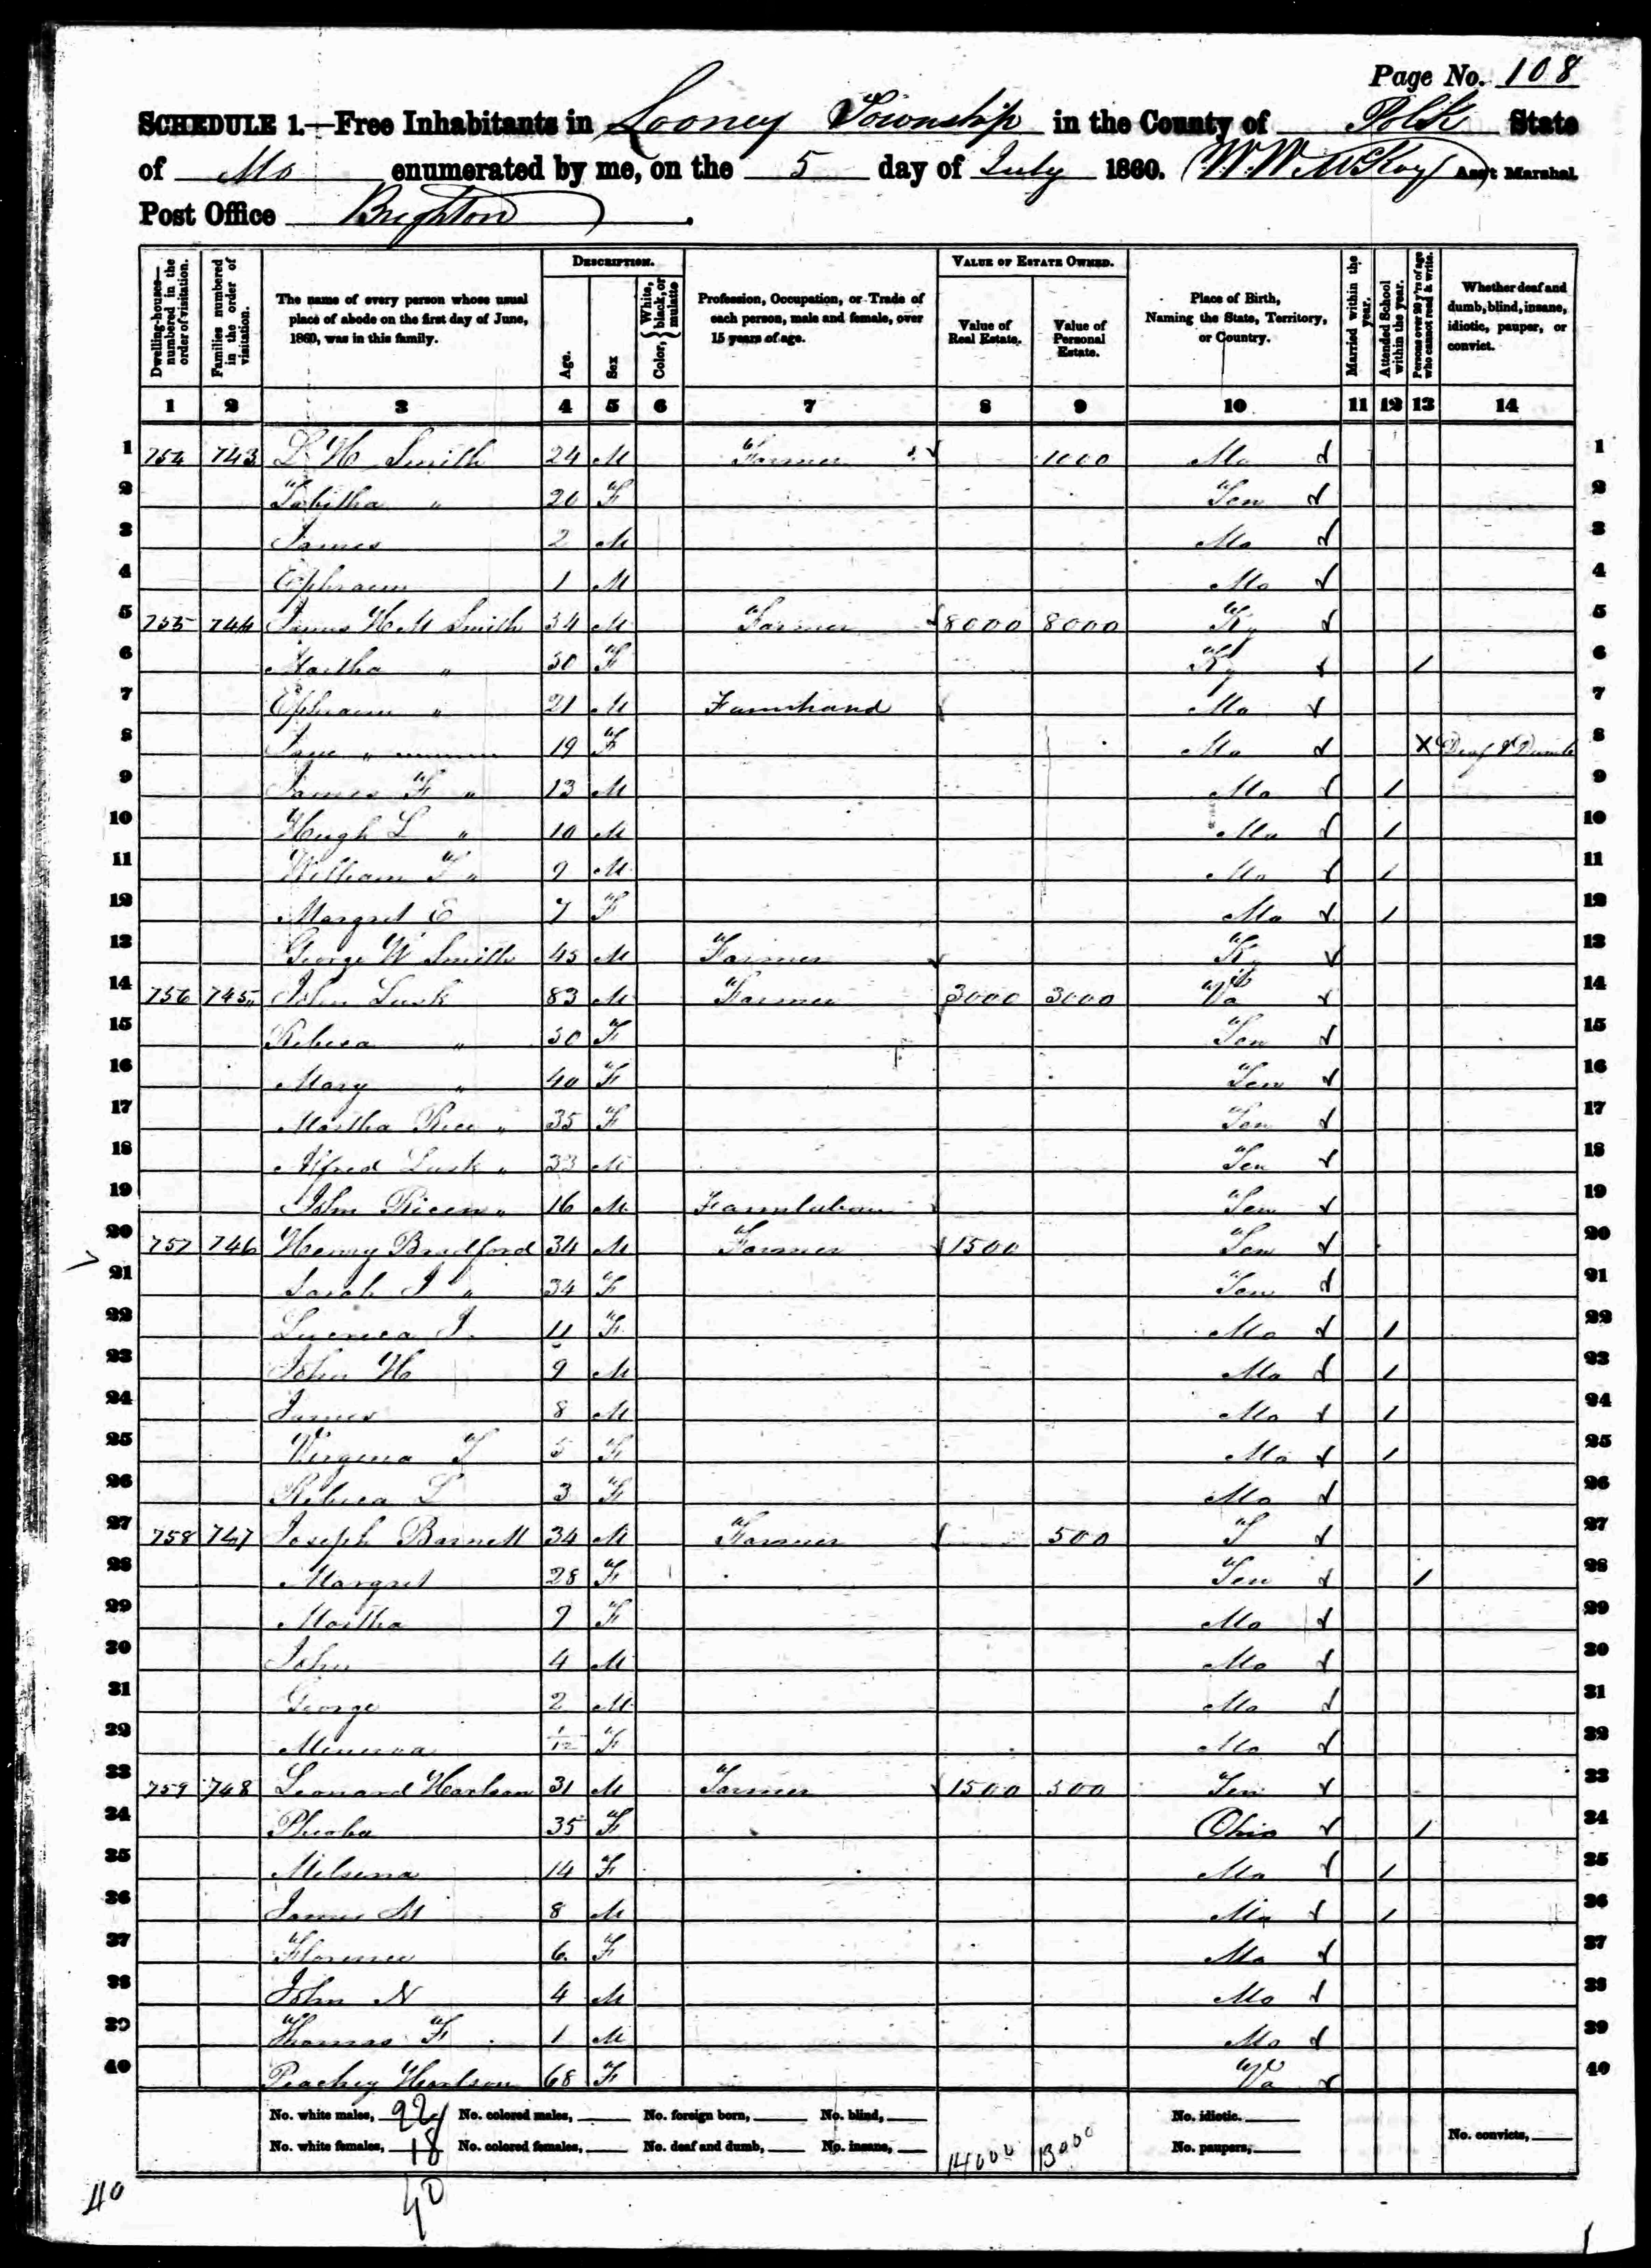 Page No. 108
SCHEDULE 1.—Free Inhabitants in Looney Township in the County of Polk State
of Mo enumerated by me, on the 5 day of July 1860. W. W. McKoy Ass't Marshal
Post Office Brighton
Dwelling-houses—numbered in the order of visitation.
Families numbered in the order of visitation.
The name of every person whose usual place of abode on the first day of June, 1860, was in this family.
DESCRIPTION.
Age.
Sex
Color, { White, black, or mulatto
Profession, Occupation, or Trade of each person, male and female, over 15 years of age.
VALUE OF ESTATE OWNED.
Value of Real Estate.
Value of Personal Estate.
Place of Birth, Naming the State, Territory, or Country.
Married within the year.
Attended School within the year.
Persons over 20 y'rs of age who cannot read & write.
Whether deaf and dumb, blind, insane, idiotic, pauper, or convict.
1 2 3 4 5 6 7 8 9 10 11 12 13 14
1 754 743 L H Smith 24 M Farmer 1000 Mo 1
2 Tabitha " 20 F Ten 2
3 James 2 M Mo 3
4 Ephraim 1 M Mo 4
5 755 744 James H M Smith 34 M Farmer 8000 8000 Ky 5
6 Martha " 30 F Ky / 6
7 Ephraim " 21 M Farmhand Mo 7
8 Jane " 19 F Mo X Deaf & Dumb 8
9 James F " 13 M Mo / 9
10 Hugh L " 10 M Mo / 10
11 William T " 9 M Mo / 11
12 Margret E 7 F Mo / 12
13 George W Smith 45 M Farmer Ky 13
14 756 745 John Lusk 83 M Farmer 3000 3000 Va 14
15 Rebeca " 30 F Ten 15
16 Mary " 40 F Ten 16
17 Martha Rice " 35 F Ten 17
18 Alfred Lusk " 33 M Ten 18
19 John " 16 M Ten 19
20 757 746 Henry Bradford 34 M Farmer 1500 Ten 20
21 Sarah J " 34 F Ten 21
22 J. 11 F Mo / 22
23 John H 9 M Mo / 23
24 James 8 M Mo / 24
25 Virginia T 5 F Mo / 25
26 Rebeca L 3 F Mo 26
27 758 747 Joseph Barnett 34 M Farmer 500 T 27
28 Margret 28 F Ten / 28
29 Martha 7 F Mo 29
30 John 4 M Mo 30
31 George 2 M Mo 31
32 Minerva 1/12 F Mo 32
33 759 748 Leonard Harlson 31 M Farmer 1500 500 Ten 33
34 Pheoba 35 F Ohio / 34
35 Milsena 14 F Mo / 35
36 James M 8 M Mo / 36
37 Florence 6 F Mo 37
38 John N 4 M Mo 38
39 Thomas F 1 M Mo 39
40 Peachey Harlson 68 F Va 40
No. white males, 22 No. colored males, No. foreign born, No. blind, No. idiotic.
No. white females, 18 No. colored females, No. deaf and dumb, No. insane, 14000 13000 No. paupers, No. convicts,
40 40